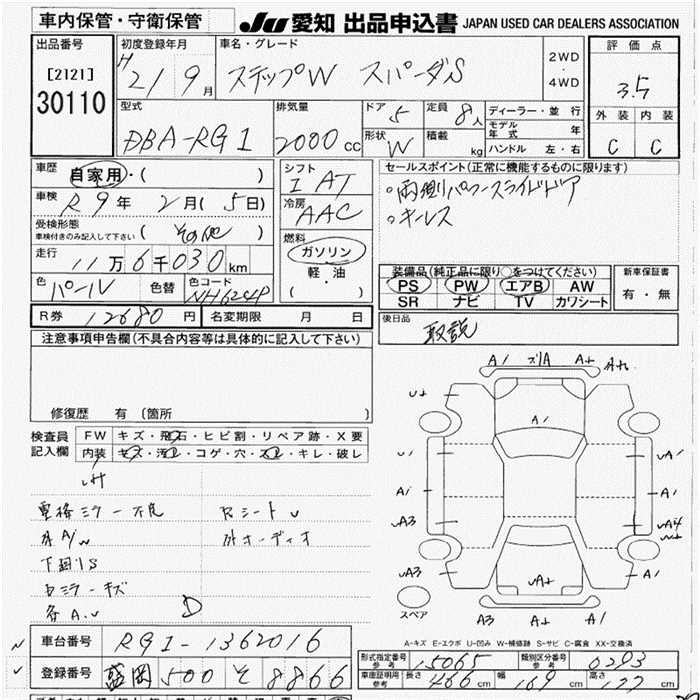 車内保管・守衛保管
JU 愛知 出品申込書 JAPAN USED CAR DEALERS ASSOCIATION
出品番号
[2121]
30110
初度登録年月
H 21 9月
車名・グレード
ステップW スパーダS
2WD
・
4WD
評価点
3.5
外装 内装
C C
型式
DBA-RG1
排気量
2000cc
ドア 5
形状 W
定員 8人
積載 kg
ディーラー・並行
モデル年式 年
ハンドル 左・右
車歴
自家用・( )
車検 R9年 2月(5日)
受検形態
車検付きのみ記入して下さい (その他)
走行
11万6千030km
色
パール
色替
色コード
NH624P
シフト
I AT
冷房
AAC
燃料
ガソリン
軽・油
( )
セールスポイント(正常に機能するものに限ります)
・両側パワースライドドア
・キーレス
装備品(純正品に限り○をつけてください)
PS PW エアB AW
SR ナビ TV カワシート
新車保証書
有・無
R券 12680円
名変期限 月 日
後日品
取説
注意事項申告欄(不具合内容等は具体的に記入して下さい)
修復歴 有 〔箇所 〕
検査員記入欄
FW キズ・飛石・ヒビ割・リペア跡・X要
内装 キズ・汚レ・コゲ・穴・スレ・キレ・破レ
電格ミラー不良
外A/W
下廻りS
ミラーキズ
各A.U
シートU
外オーディオ
D
A1 A+ A+
U+ A1
U1 UA1
A1 A1
UA3 UA4
UA3 UA+ A1
A3 A+ A1
スペア
A-キズ E-エクボ U-凹み W-補修跡 S-サビ C-腐食 XX-交換済
車台番号 RG1-1362016
登録番号 盛岡 500 そ 8866
型式指定番号 参考 15065
類別区分番号 参考 0293
車庫証明用 参考 長さ 466cm 幅 169cm 高さ 177cm